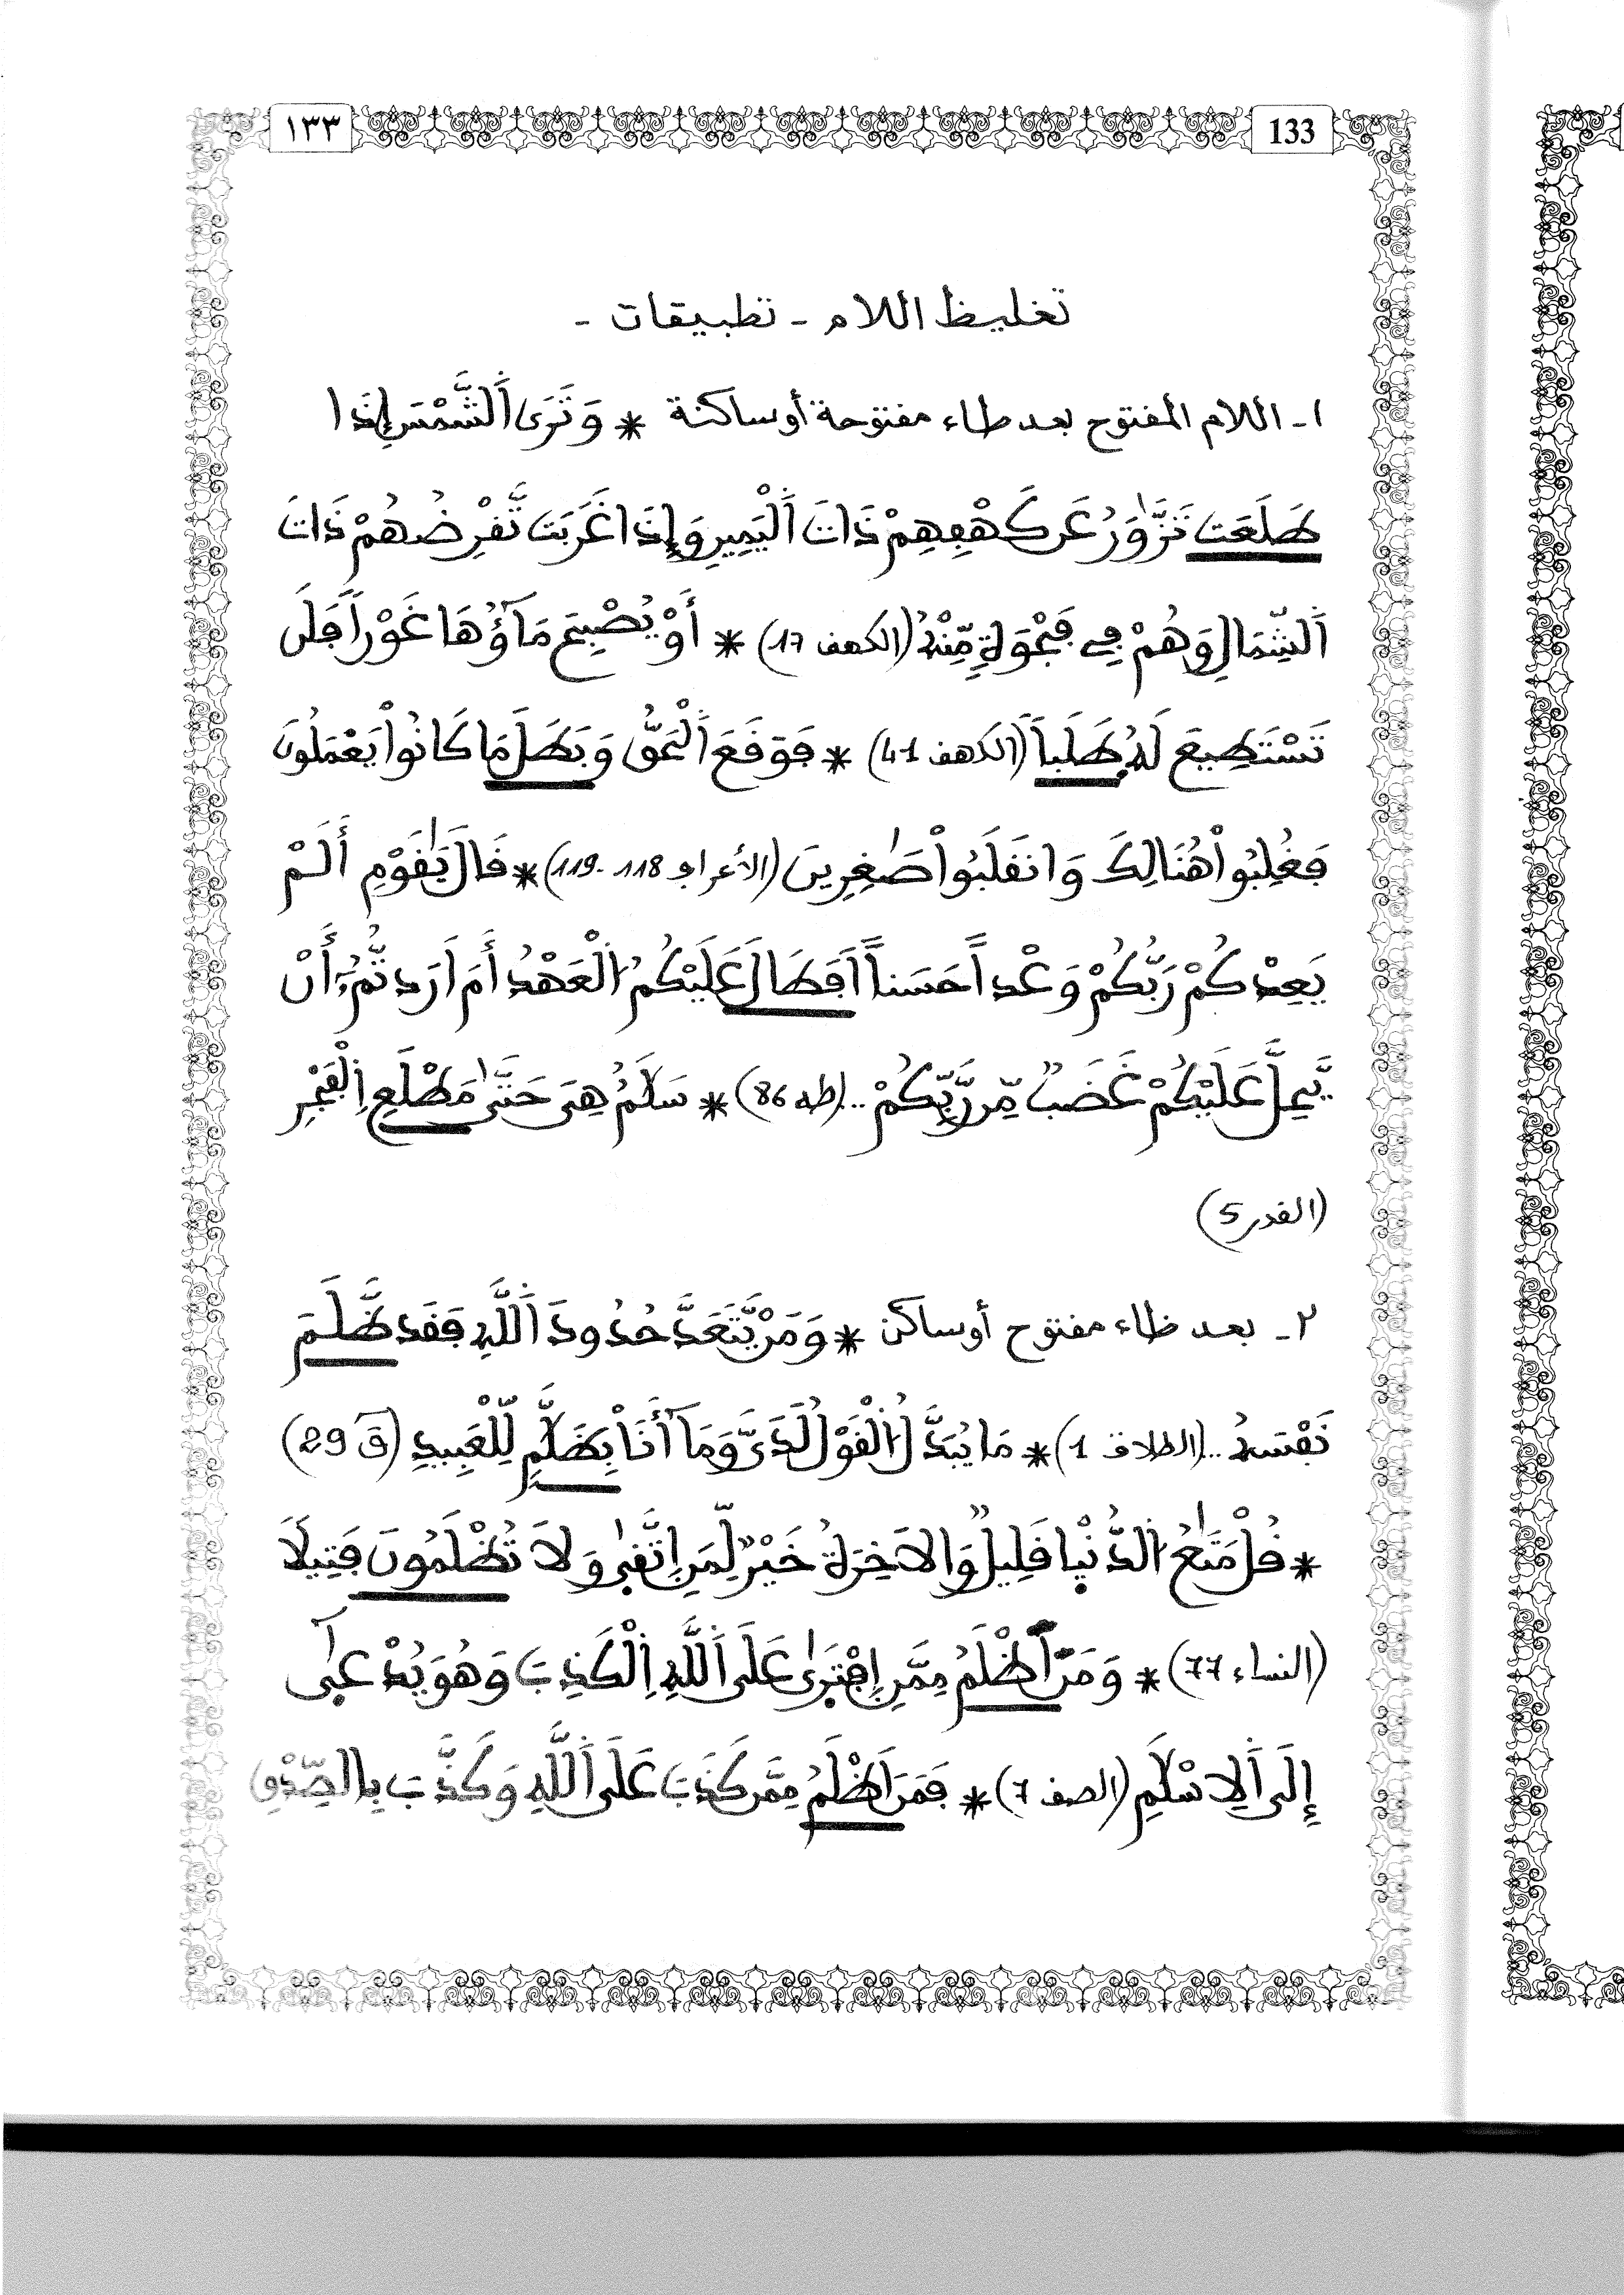 ١٣٣ 133
تغليظ اللام - تطبيقات -
١- اللام المفتوح بعد طاء مفتوحة أو ساكنة * وَتَرَى اَلشَّمْسَ إِذَا
طَلَعَت تَّزَّٰوَرُ عَن كَهْفِهِمْ ذَاتَ اَلْيَمِينِ وَإِذَا غَرَبَت تَّقْرِضُهُمْ ذَاتَ
اَلشِّمَالِ وَهُمْ فِي فَجْوَةٍ مِّنْهُ (الكهف 17) * أَوْ يُصْبِحَ مَآؤُهَا غَوْراً فَلَن
تَسْتَطِيعَ لَهُ طَلَباً (الكهف 41) * فَوَقَعَ اَلْحَقُّ وَبَطَلَ مَا كَانُواْ يَعْمَلُونَ
فَغُلِبُواْ هُنَالِكَ وَانقَلَبُواْ صَٰغِرِينَ (الأعراف 118-119) * قَالَ يَٰقَوْمِ أَلَمْ
يَعِدْكُمْ رَبُّكُمْ وَعْداً حَسَناً اَفَطَالَ عَلَيْكُمُ اُلْعَهْدُ أَمَ اَرَدتُّمُۥٓ أَنْ
يَّحِلَّ عَلَيْكُمْ غَضَبٌ مِّن رَّبِّكُمْ .. (طه 86) * سَلَٰمٌ هِيَ حَتَّىٰ مَطْلَعِ اِلْفَجْرِ
(القدر 5)
٢- بعد ظاء مفتوح أو ساكن * وَمَنْ يَّتَعَدَّ حُدُودَ اَللَّهِ فَقَد ظَّلَمَ
نَفْسَهُ .. (الطلاق 1) * مَا يُبَدَّلُ اُلْقَوْلُ لَدَيَّ وَمَآ أَنَا بِظَلَّٰمٍ لِّلْعَبِيدِ (قٓ 29)
* قُلْ مَتَٰعُ اُلدُّنْيا قَلِيلٌ وَالاَخِرَةُ خَيْرٌ لِّمَنِ اِتَّقىٰ وَلاَ تُظْلَمُونَ فَتِيلاً
(النساء 77) * وَمَنَ اَظْلَمُ مِمَّنِ اِفْتَرىٰ عَلَى اَللَّهِ اِلْكَذِبَ وَهُوَ يُدْعىٰٓ
إِلَى اَلِاسْلَٰمِ (الصف 7) * فَمَنَ اَظْلَمُ مِمَّن كَذَبَ عَلَى اَللَّهِ وَكَذَّبَ بِالصِّدْقِ